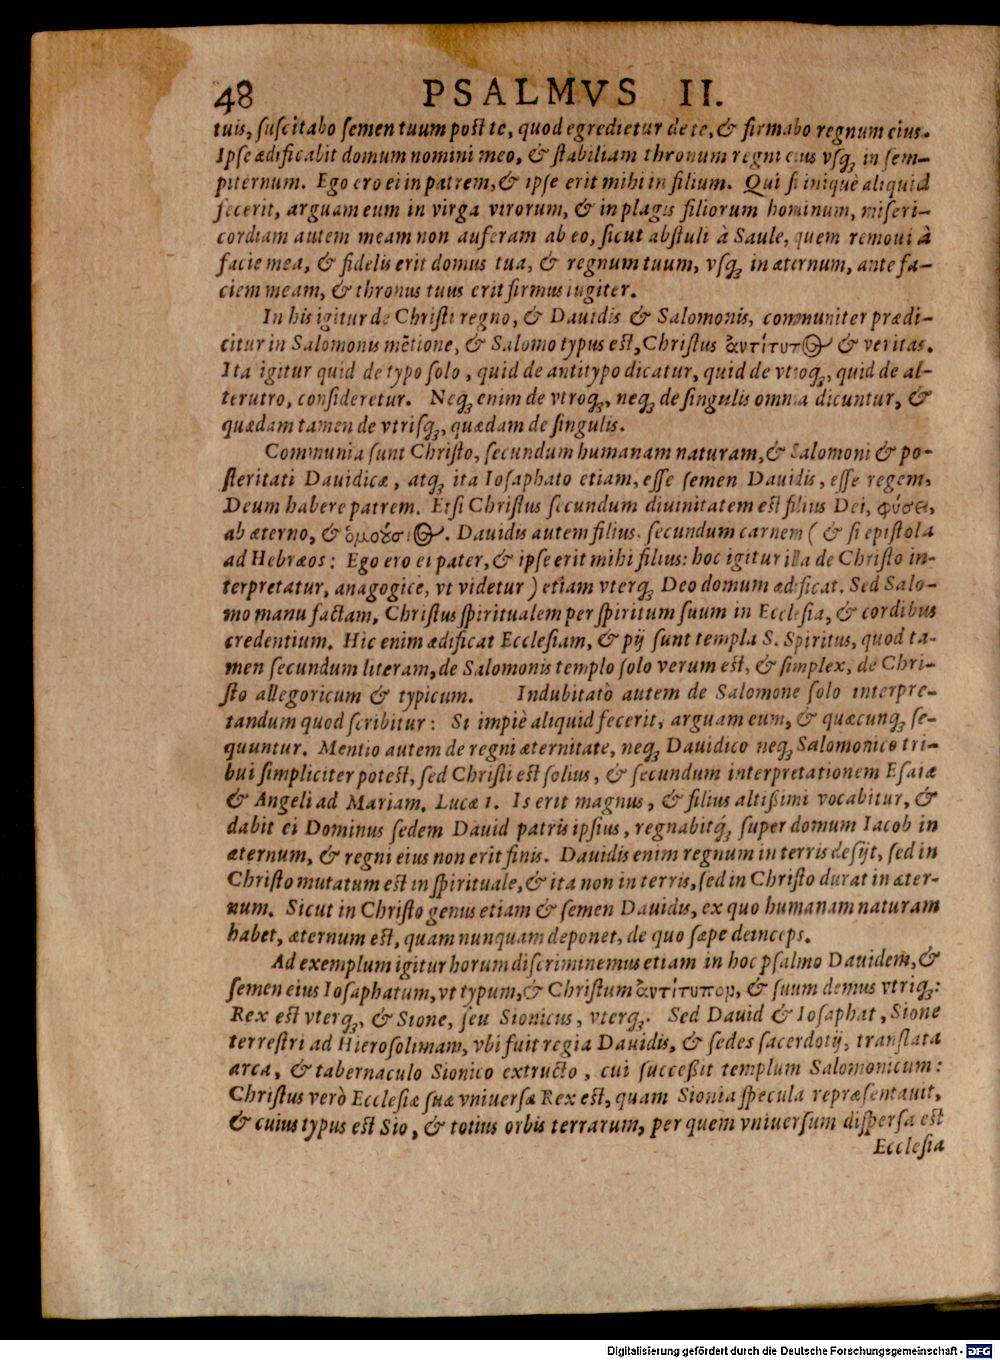 48 PSALMVS II.
tuis, ſuſcitabo ſemen tuum poſt te, quod egredietur de te, & firmabo regnum eius.
Ipſe ædificabit domum nomini meo, & ſtabiliam thronum regni eius vſq́ꝫ in ſem-
piternum. Ego ero ei in patrem, & ipſe erit mihi in filium. Qui ſi iniquè aliquid
fecerit, arguam eum in virga virorum, & in plagis filiorum hominum, miſeri-
cordiam autem meam non auferam ab eo, ſicut abſtuli à Saule, quem remoui à
facie mea, & fidelis erit domus tua, & regnum tuum, vſqꝫ in æternum, ante fa-
ciem meam, & thronus tuus erit firmus iugiter.
In his igitur de Chriſti regno, & Dauidis & Salomonis, communiter prædi-
citur in Salomonis mẽtione, & Salomo typus eſt, Chriſtus ἀντίτυπ⊕ & veritas.
Ita igitur quid de typo ſolo, quid de antitypo dicatur, quid de vtroqꝫ, quid de al-
terutro, conſideretur. Neqꝫ enim de vtroqꝫ, neqꝫ de ſingulis omnia dicuntur, &
quædam tamen de vtriſqꝫ, quædam de ſingulis.
Communia ſunt Chriſto, ſecundum humanam naturam, & Salomoni & po-
ſteritati Dauidicæ, atqꝫ ita Ioſaphato etiam, eſſe ſemen Dauidis, eſſe regem,
Deum habere patrem. Etſi Chriſtus ſecundum diuinitatem eſt filius Dei, φύσει,
ab æterno, & ὁμοȣ́σι⊕. Dauidis autem filius, ſecundum carnem ( & ſi epiſtola
ad Hebræos: Ego ero ei pater, & ipſe erit mihi filius: hoc igitur illa de Chriſto in-
terpretatur, anagogice, vt videtur ) etiam vterqꝫ Deo domum ædificat. Sed Salo-
mo manu factam, Chriſtus ſpiritualem per ſpiritum ſuum in Eccleſia, & cordibus
credentium. Hic enim ædificat Eccleſiam, & pij ſunt templa S. Spiritus, quod ta-
men ſecundum literam, de Salomonis templo ſolo verum eſt, & ſimplex, de Chri-
ſto allegoricum & typicum. Indubitatò autem de Salomone ſolo interpre-
tandum quod ſcribitur: Si impiè aliquid fecerit, arguam eum, & quæcunqꝫ ſe-
quuntur. Mentio autem de regni æternitate, neqꝫ Dauidico neqꝫ Salomonico tri-
bui ſimpliciter poteſt, ſed Chriſti eſt ſolius, & ſecundum interpretationem Eſaiæ
& Angeli ad Mariam, Lucæ 1. Is erit magnus, & filius altißimi vocabitur, &
dabit ei Dominus ſedem Dauid patris ipſius, regnabitq́ꝫ ſuper domum Iacob in
æternum, & regni eius non erit finis. Dauidis enim regnum in terris deſijt, ſed in
Chriſto mutatum eſt in ſpirituale, & ita non in terris, ſed in Chriſto durat in æter-
num. Sicut in Chriſto genus etiam & ſemen Dauidis, ex quo humanam naturam
habet, æternum eſt, quam nunquam deponet, de quo ſæpe deinceps.
Ad exemplum igitur horum diſcriminemus etiam in hoc pſalmo Dauidem, &
ſemen eius Ioſaphatum, vt typum, & Chriſtum ἀντίτυπον, & ſuum demus vtriqꝫ:
Rex eſt vterqꝫ, & Sione, ſeu Sionicus, vterqꝫ. Sed Dauid & Ioſaphat, Sione
terreſtri ad Hieroſolimam, vbi fuit regia Dauidis, & ſedes ſacerdotij, translata
arca, & tabernaculo Sionico extructo, cui ſucceßit templum Salomonicum:
Chriſtus verò Eccleſiæ ſuæ vniuerſæ Rex eſt, quam Sionia ſpecula repræſentauit,
& cuius typus eſt Sio, & totius orbis terrarum, per quem vniuerſum diſperſa eſt
Eccleſia
Digitalisierung gefördert durch die Deutsche Forschungsgemeinschaft - DFG